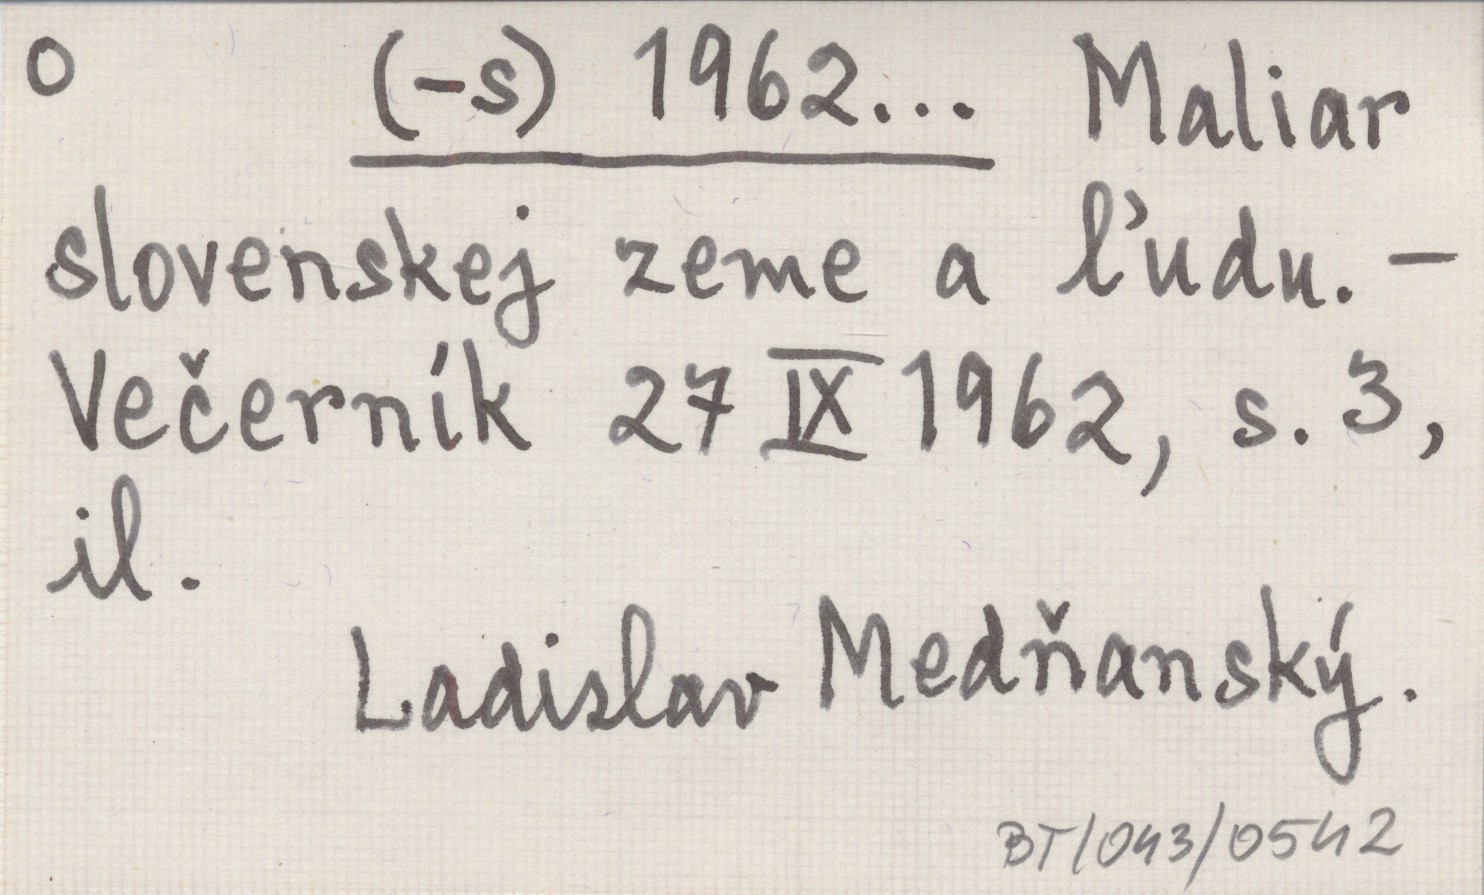 O (-s) 1962... Maliar
slovenskej zeme a ľudu. -
Večerník 27 IX 1962, s. 3,
il.
Ladislav Medňanský.
BT/043/0542